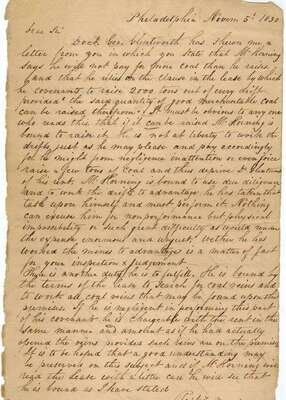 Philadelphia Novem 5th 1830
Dear Sir
Doct. Geo. Glentworth has shewn me a
letter from you in which you state that Mr Horning
says he will not pay for more coal than he raises
and that he relies on the clause in the lease by which
he covenants to raise 2000 tons out of every drift
provided the said quantity of good merchantable coal
can be raised therefrom. It must be obvious to any one
who reads this that if it can be raised Mr Horning is
bound to raise it. He is not at liberty to work the
drifts just as he may please and pay accordingly
for he might from negligence inattention or even force
raise a few tons of coal and thus deprive Dr Glentworth
of his rent. Mr Horning is bound to use due diligence
and to work the drifts to advantage; he has taken that
task upon himself and must perform it. Nothing
can excuse him for nonperformance but physical
impossibility or such great difficulty as would render
the expense enormous and unjust. Wether he has
worked the mines to advantage is a matter of fact
for your inspection & judgement.
There is another duty he is to fulfill. He is bound by
the terms of the lease to search for coal veins and
to work all coal veins that may be found upon the
premises. If he is negligent in performing this part
of his covenant he is chargeable with coal rent in the
same manner and amount as if he had actually
opened the veins provided such veins are on the premises
It is to be hoped that a good understanding may
be preserved on this subject and if Mr Horning will
regard the lease with a better eye he will see that
he is bound as I have stated